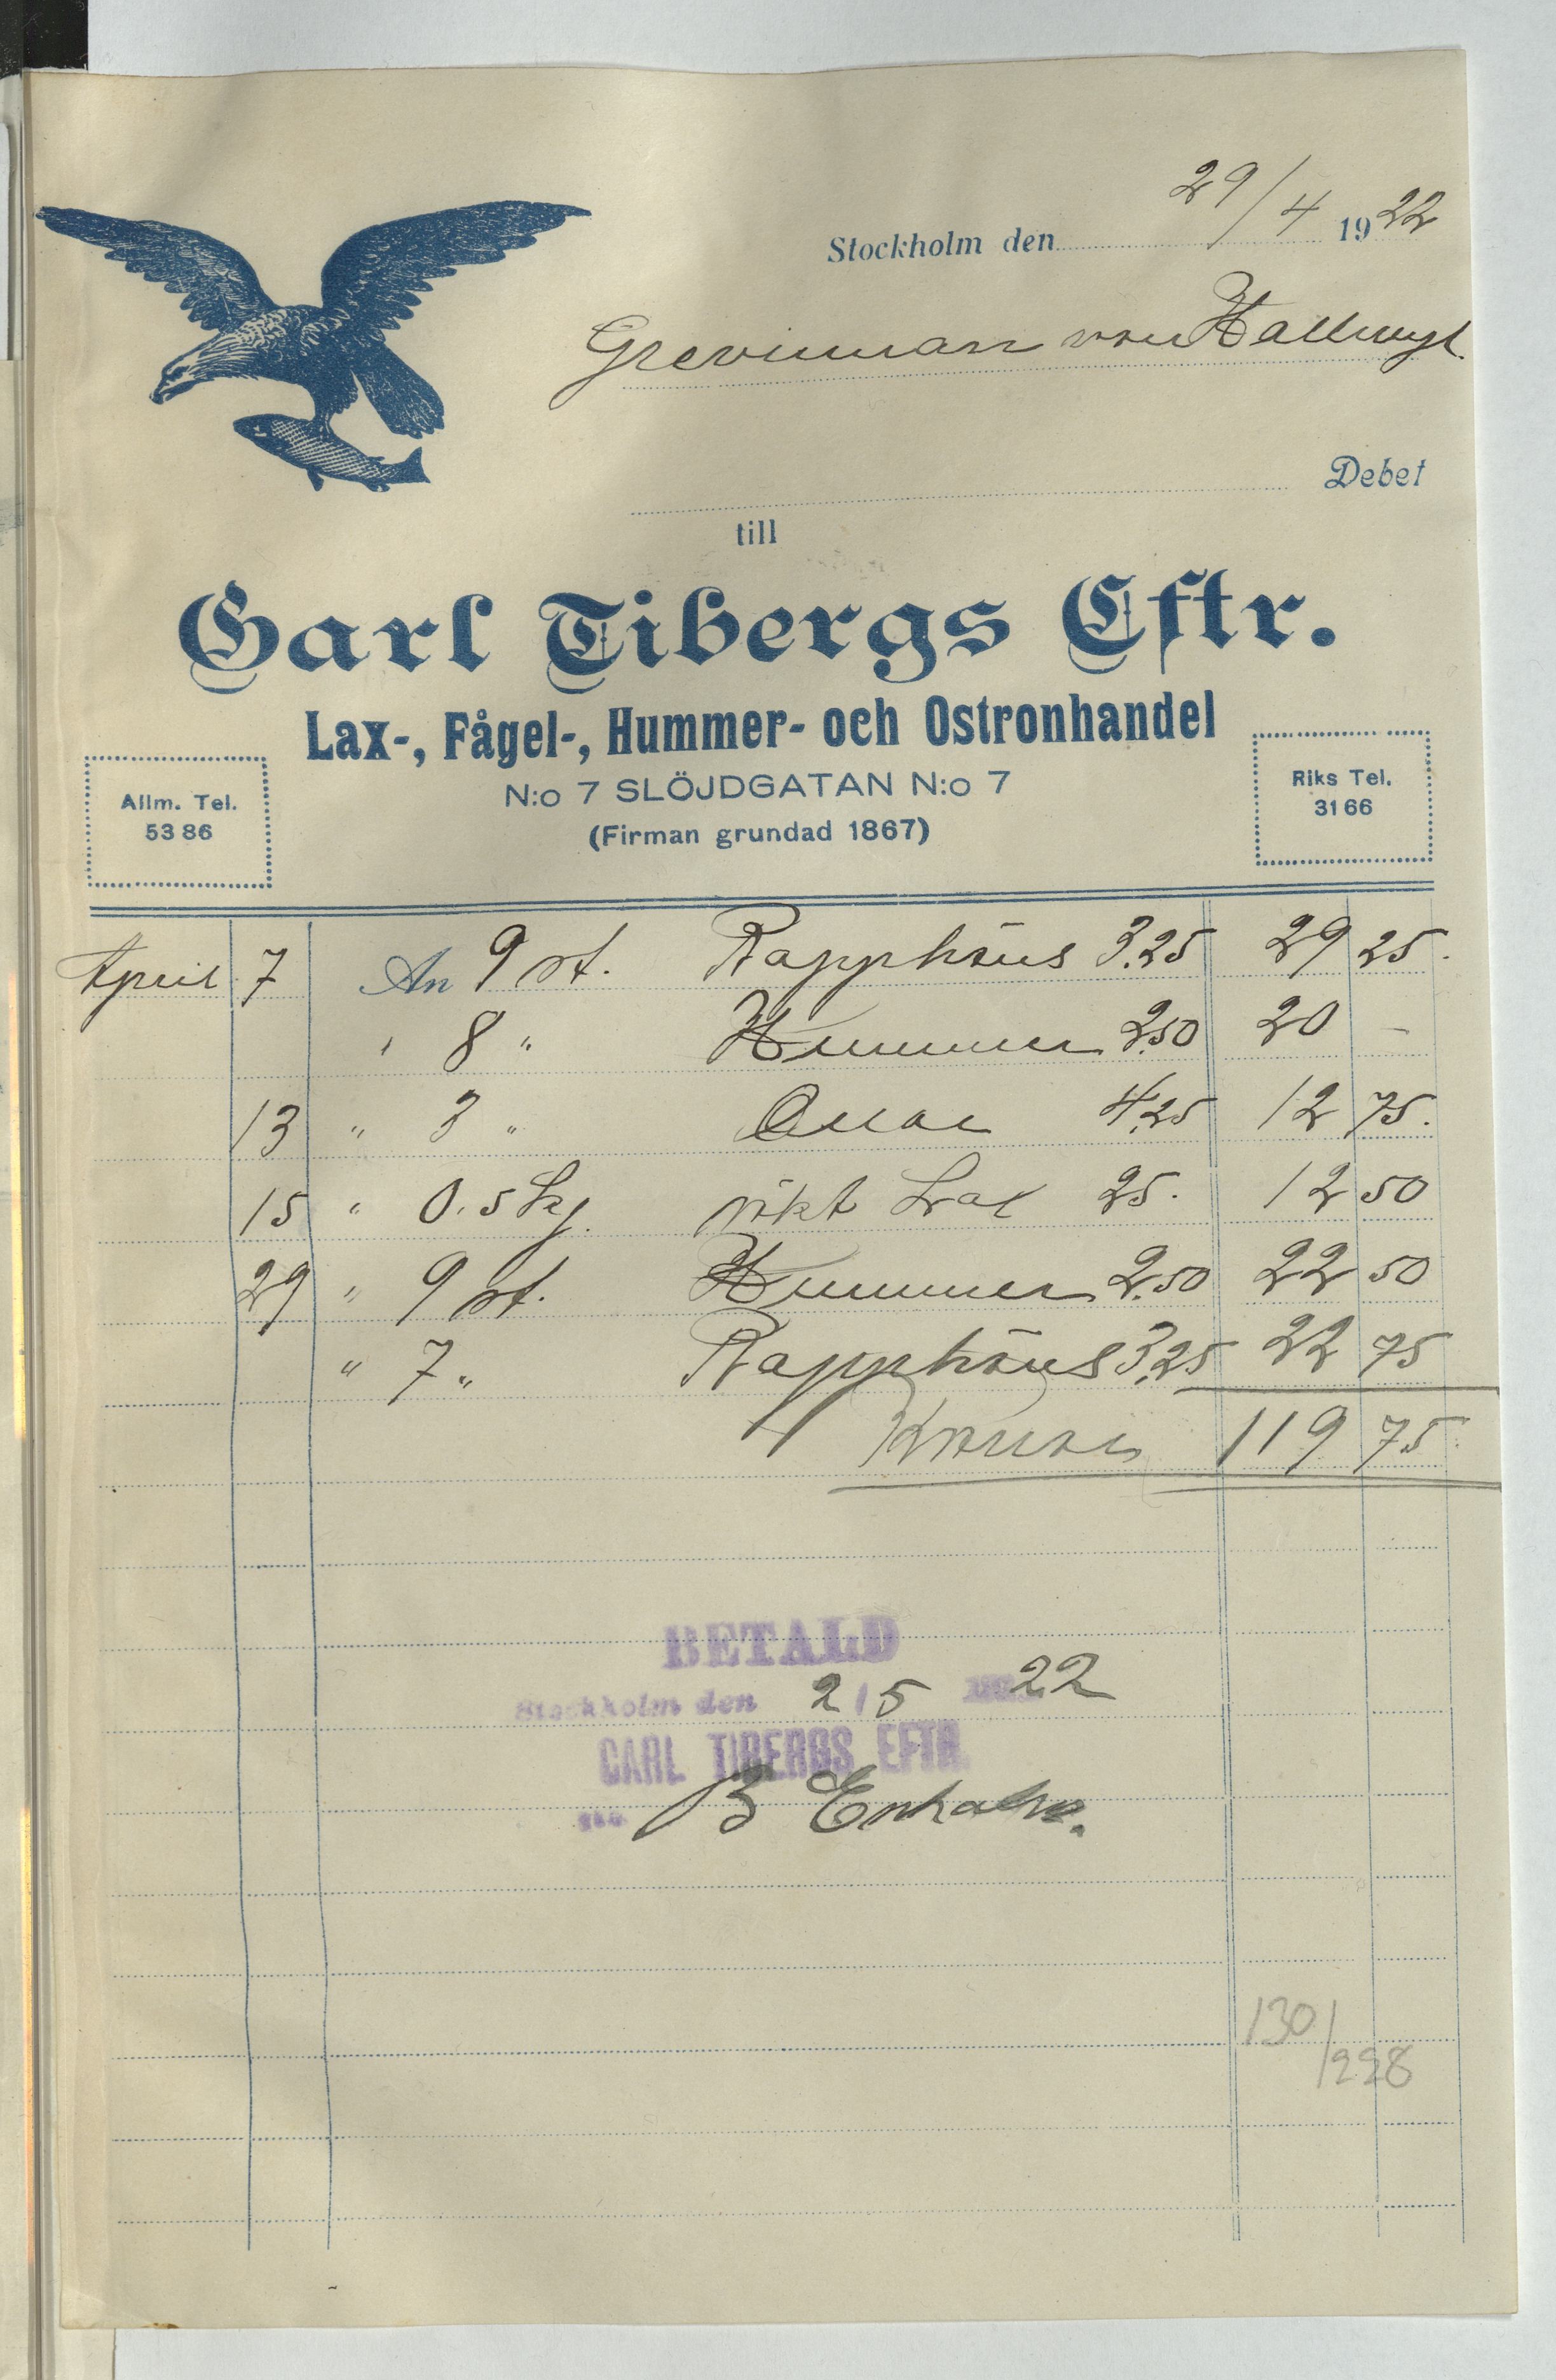 Stockholm den 29/4 1922
Grevinnan von Hallwyl.
Debet
till
Carl Tibergs Eftr.
Lax-, Fågel-, Hummer- och Ostronhandel
N:o 7 SLÖJDGATAN N:o 7
(Firman grundad 1867)
Allm. Tel.
53 86
Riks Tel.
31 66
April 7 An 9 st. Rapphöns 3.25 29 25.
" 8 " Hummer 2.50 20 -
13 " 3 " 4.25 12 75.
15 " 0.5 kg. rökt Lax 25. 12 50
29 " 9 st. Hummer 2.50 22 50
" 7 " Rapphöns 3.25 22 75
Kronor 119 75
BETALD
Stockholm den 2/5 22
CARL TIBERGS EFTR.
B
130/228